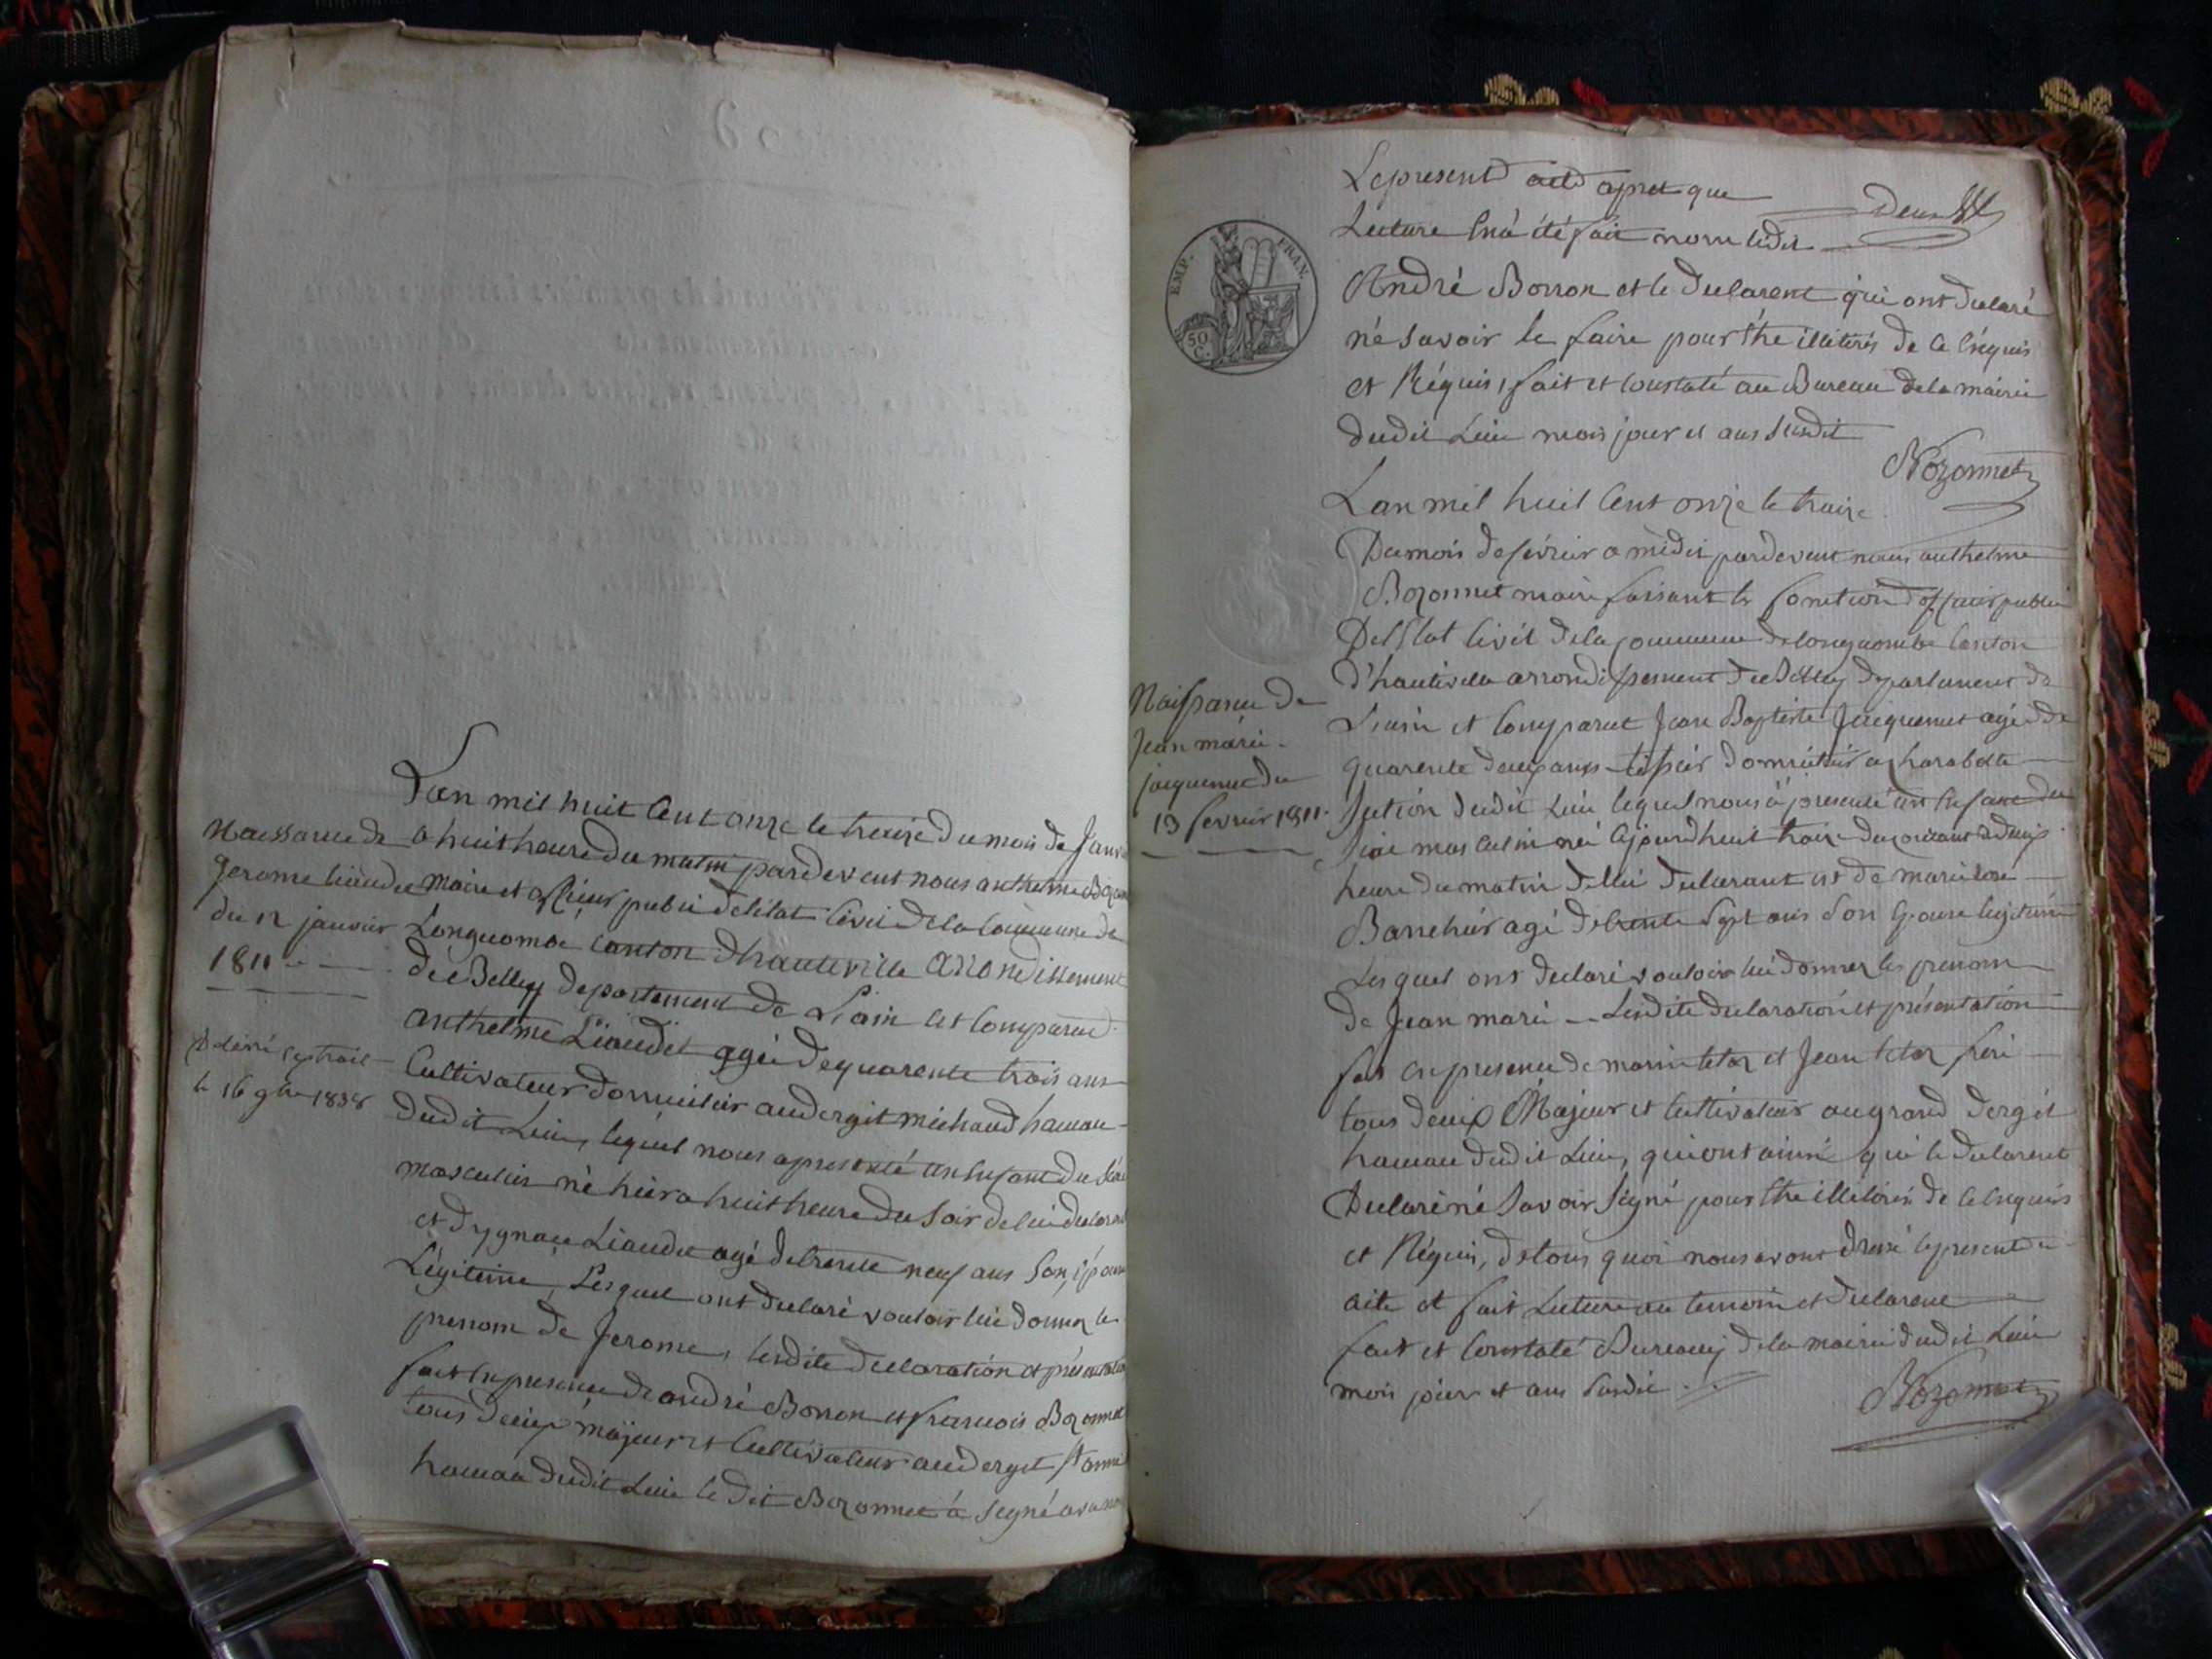 Lan mil huit Cent onze le treize du mois de Janv
Naissance de
Jerome liaudet
du 12 janvier
1811
Délivré
le 16 9bre 1838
a huit heure du matin pardevant nous anthelme Bozon
Maire et officier public deletat Civil dela Commune de
Longecombe Canton d'hauteville arrondissement
de Belley departement de L'ain est Comparue
anthelme Liaudet agé de quarente trois ans
Cultivateur domicilier audergit michaud hamau
dudit Lieu, lequel nous apresenté un Enfant du
masculin né hier a huit heure du Soir de lui declarant
et dygnace Liaudet agé de trente neuf ans Son épouse
Légitime, Lesquel ont declaré vouloir lui donner le
prenom de Jerome, lesdite declaration et présentation
fait En presence de andré Borron et francois Bozonnet
tous deux majeur et Cultivateur audergit
hamau dudit Lieu le dit Bozonnet à Segné
Le present acte apret que
deux
Lecture Ena été fait nom ledit
André Borron et le declarent qui ont declaré
né Savoir le faire pour Etre illétérés de Ce Enquis
et Réquis, fait et Constaté au Bureau de la mairie
dudit Lieu mois jour et ans Susdit
Bozonnet
EMP. FRAN.
50 C.
Lan mil huit Cent onze le traize
Dumois de février a midit pardevent nous anthelme
Bozonnet maire faisant les fonction d'officier public
Del'Etat Civil dela Commune de longecombe Canton
d'hauteville arrondissement de Belley departement de
L'ain et Comparut Jean Baptiste Jacquemet agé de
quarente deux ans tissier domicilier a Charabotte
Naissance de
Jean marie
jacquemet du
13 fevrier 1811
Section dudit Lieu lequel nous à presenté un Enfant du
Sixe masculin né Ajourdhuit traize du Courant a deux
heure du matin delui declarant et de marie
agé de trente Sept ans Son Epouse legitime
Lesquel ont declaré vouloir lui donner les prenom
de Jean marie Lesdite declaration et présentation
fait En presence de marin tetaz et Jean tetaz frere
tous deux Majeur et Cultivateur au grand dergit
hamau dudit Lieu, qui ont ainsi qui le declarent
Declaré né Savoir Segné pour Etre illétérés de Ce Enquis
et Réquis, de tous quoi nous avons dressé le present
acte et fait Lecture au temoin et declarent
fait et Constaté Bureau de la mairie dudit Lieu
mois jour et ans Susdit
Bozonnet